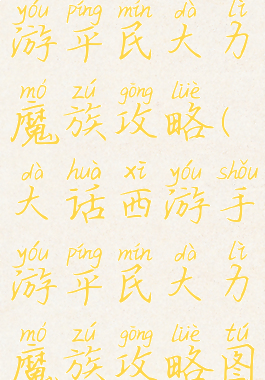 yóu píng mín dà lì
游平民大力
mó zú gōng lüè
魔族攻略(
dà huà xī yóu shǒu
大话西游手
yóu píng mín dà lì
游平民大力
mó zú gōng lüè tú
魔族攻略图